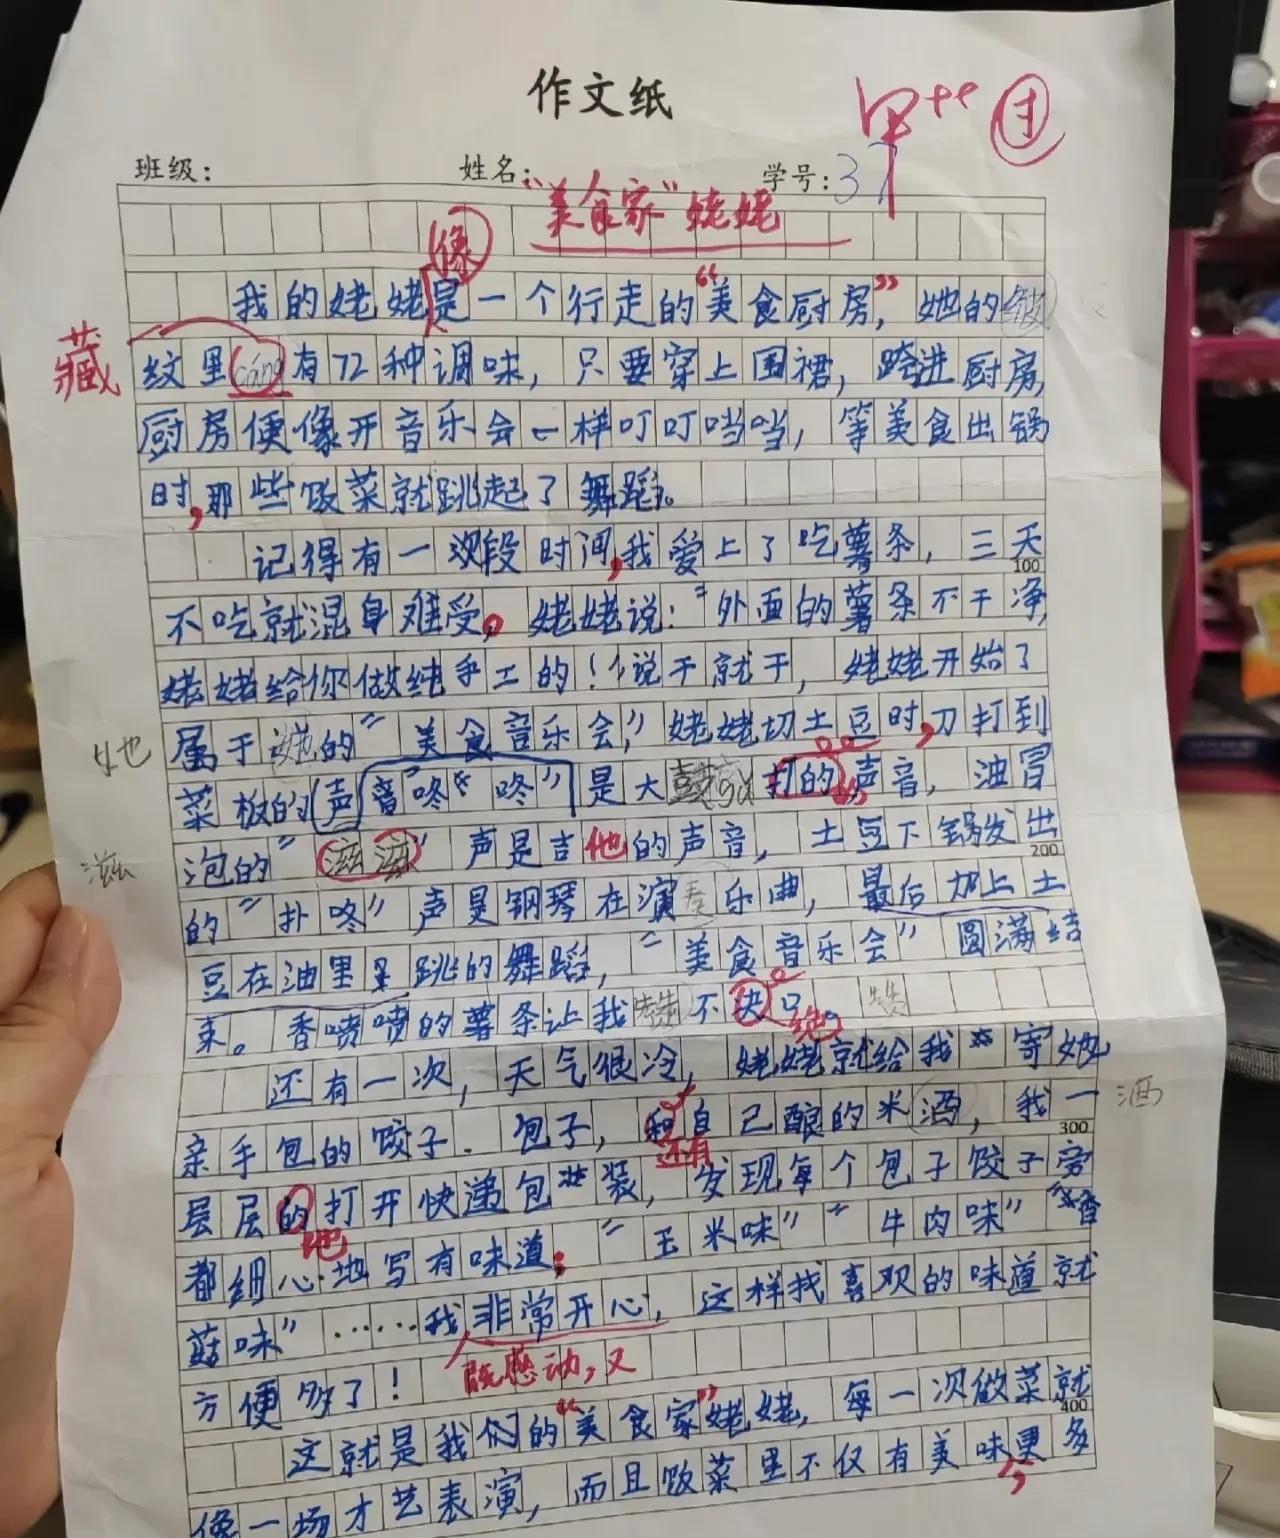 作文纸
甲++
班级： 姓名： 学号：37
"美食家"姥姥
像
我的姥姥是一个行走的"美食厨房"，她的皱
藏
纹里cáng有72种调味，只要穿上围裙，跨进厨房，
厨房便像开音乐会一样叮叮当当，等美食出锅
时，那些饭菜就跳起了舞蹈。
记得有一次段时间，我爱上了吃薯条，三天
100
不吃就混身难受。姥姥说："外面的薯条不干净，
姥姥给你做纯手工的！"说干就干，姥姥开始了
她
属于她的"美食音乐会，"姥姥切土豆时，刀打到
菜板的声音"咚""咚"是大鼓打的声音，油冒
滋
泡的"滋滋"声是吉他的声音，土豆下锅发出
200
的"扑咚"，声是钢琴在演奏乐曲，最后加上土
豆在油里跳的舞蹈，"美食音乐会"圆满结
束。香喷喷的薯条让我赞不决口 赞
绝
还有一次，天气很冷，姥姥就给我寄她
亲手包的饺子．包子，和自己酿的米酒，我一
酒
300
还有
层层的打开快递包装，发现每个包子饺子旁
地
都细心地写有味道："玉米味""牛肉味""香
菇味"……我非常开心，这样找喜欢的味道就
既感动，又
方便多了！
这就是我们的"美食家"姥姥，每一次做菜就
400
像一场才艺表演，而且饭菜里不仅有美味，更多